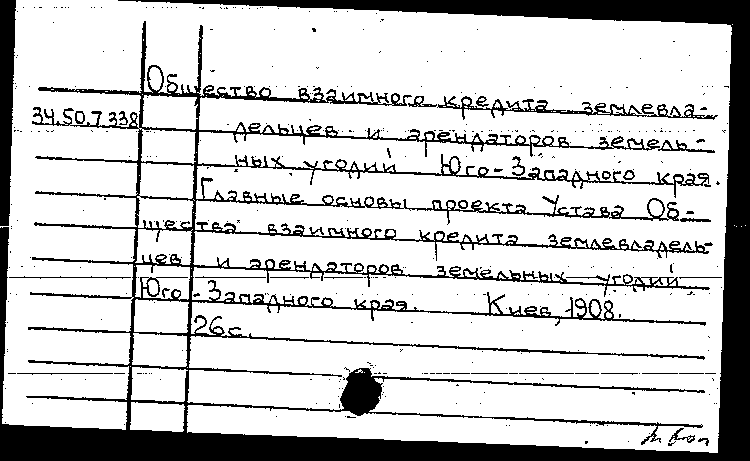 Общество взаимного кредита землевла-
34.50.7.338
дельцев и арендаторов земель-
ных угодий Юго-Западного края.
Главные основы проекта Устава Об-
щества взаимного кредита землевладель-
цев и арендаторов земельных угодий
Юго-Западного края. Киев, 1908.
26с.